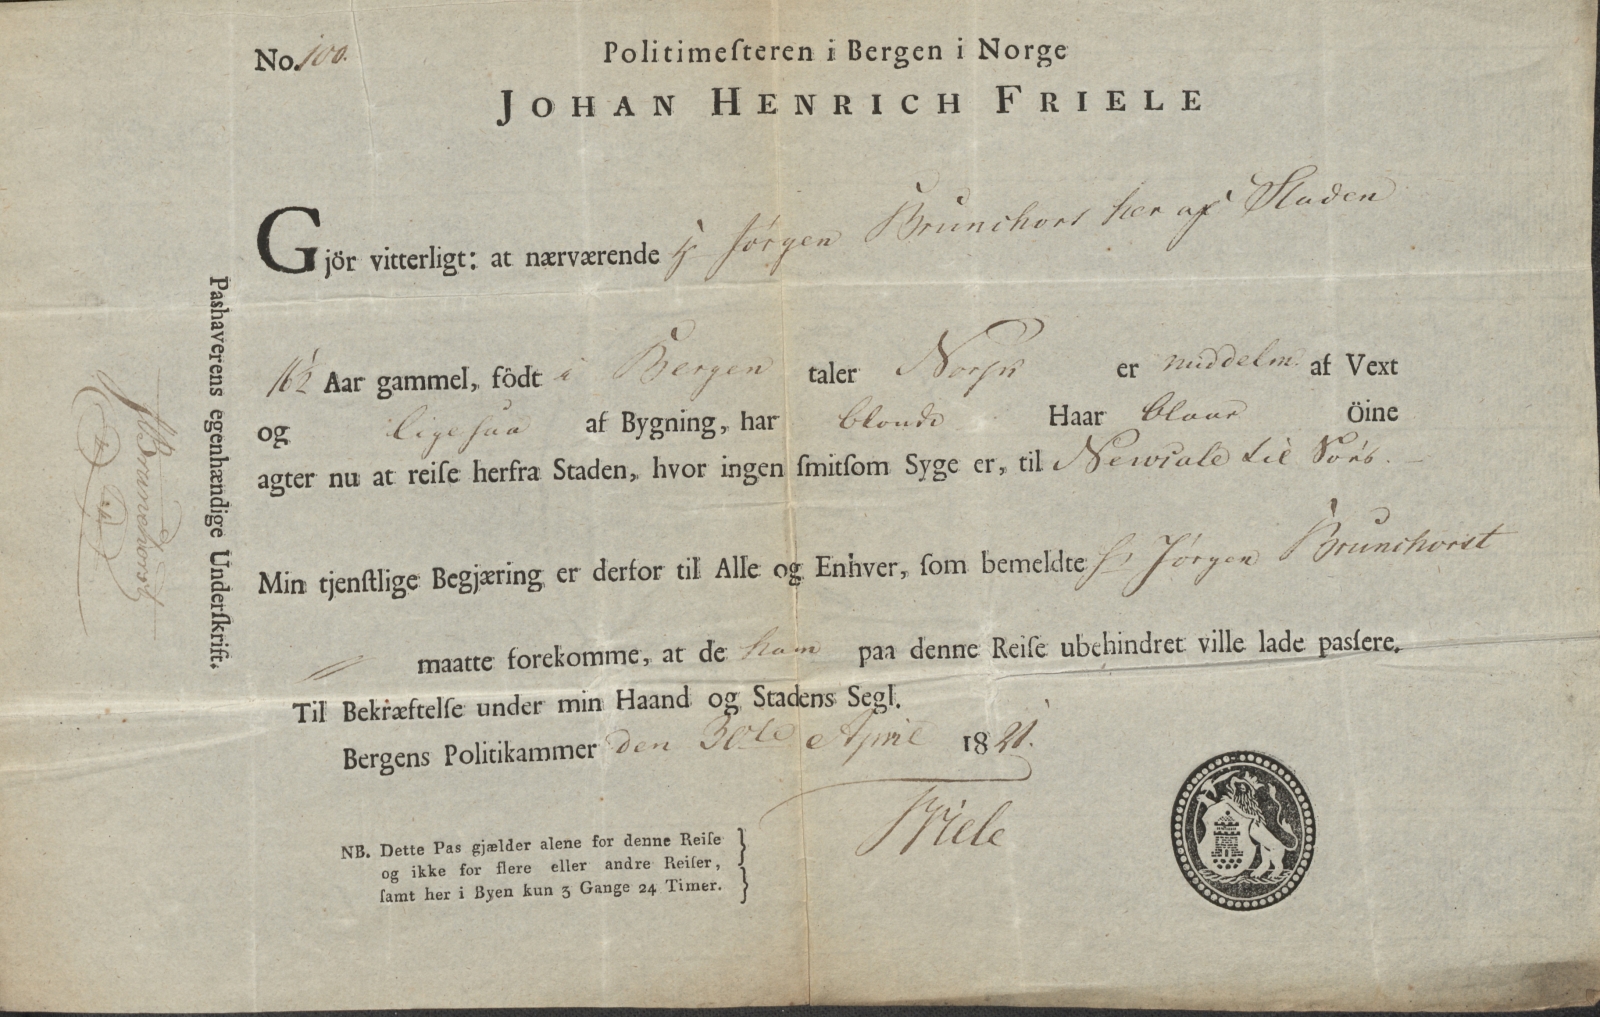 No. 100.
Politimeſteren i Bergen i Norge
JOHAN HENRICH FRIELE
Gjör vitterligt: at nærværende Hr Jørgen Brunchorst her af Staden
16½ Aar gammel, födt i Bergen taler Norsk er middelm. af Vext
og ligesaa af Bygning, har blonde Haar blaae Öine
agter nu at reiſe herfra Staden, hvor ingen ſmitſom Syge er, til Newcale til Söes.
Min tjenſtlige Begjæring er derfor til Alle og Enhver, ſom bemeldte Hr Jørgen Brunchorst
maatte forekomme, at de ham paa denne Reiſe ubehindret ville lade paſſere.
Til Bekræftelſe under min Haand og Stadens Segl.
Bergens Politikammer den 30te April 1821.
Friele
NB. Dette Pas gjælder alene for denne Reiſe
og ikke for flere eller andre Reiſer,
ſamt her i Byen kun 3 Gange 24 Timer.
Pashaverens egenhændige Underſkrift.
Brunchorst